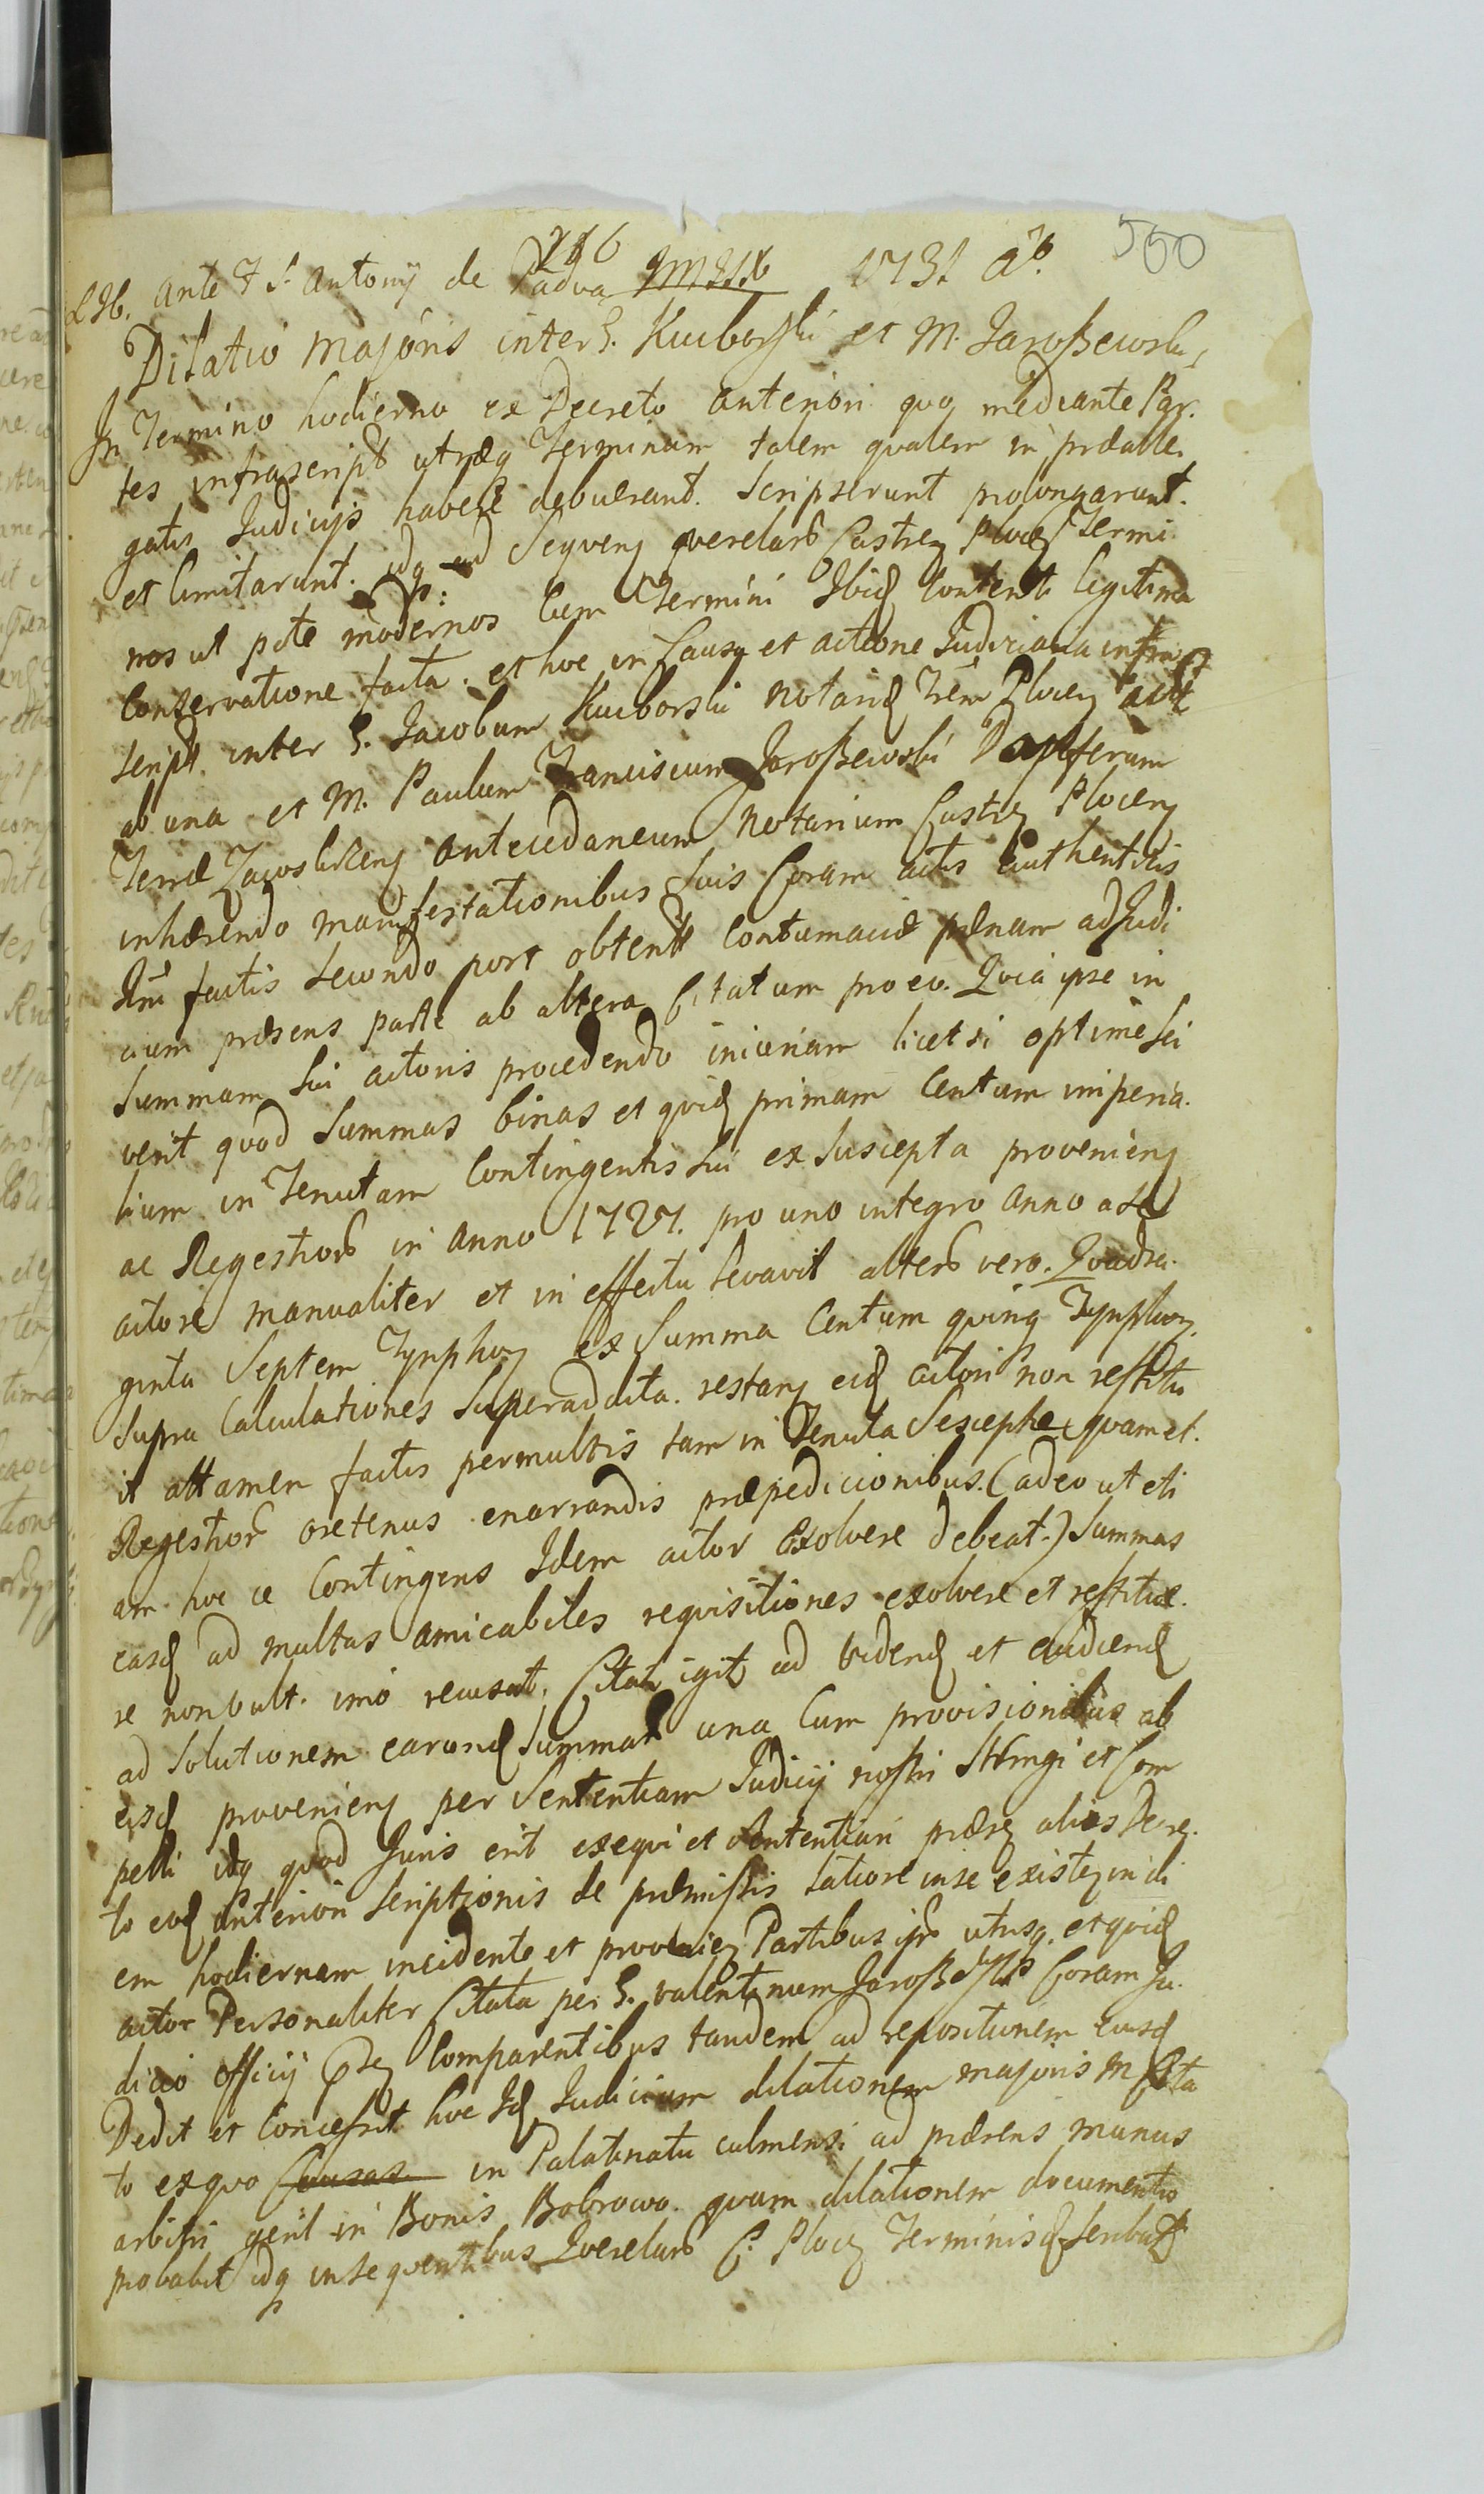 550
226
ante F S. Antonij de Padua 1731 Ao.
Dilatio Majoris inter G. Kuiborski et M. Jaroszewski
In Termino hodierno ex Decreto anteriori quo mediante Par.
tes infrascript utræq Terminum talem qualem in præalle.
gatis Judicijs habere debuerant. Scripserunt prolongarunt.
et limitarunt. idq ad Sequen querelarum Castren Plocen Termi
nos ut pote modernos Cum Termini Ibid Contenti legitima
Conservatione facta. et hoc in Causa et actione Judiciaria infra
script. inter G. Jacobum Kuiborski Notariu Trem Plocen act
ab una et M. Paulum Franciscum Jaroszewski Dapiferum
Terræ Zawskrzen antecedaneum Notarium Castren Plocen
inhærendo manifestationibus suis Coram actis authenticis
Rni factis secundo post obtent Contumaciæ pænam ad Judi
cium præsens parte ab altera Citatum pro eo. Quia ipse in
Summam sui actoris procedendo iniuriam licet si optime sci
verit quod Summas binas et quid primam Centum imperia.
lium in Tenutam Contingentis sui ex suscepta provenien
ac Regestror in anno 1727. pro uno integro anno a se
actore manualiter et in effectu levavit alteram vero. Quadra.
ginta Septem Tynphon ex Summa Centum quinq Tynphon
Supra Calculationes Superaddita. restan eid actori non restitu
it attamen factis permultis tam in Tenuta Suscepta quam et.
Regestror oretenus enarrandis præpedicionibus. (adeo ut eti
am hoc ce Contingens Idem actor Exolvere debeat.) Summas
easd ad multas amicabiles requisitiones exolvere et restitue.
re non vult. imo recusat. Citat igit ad videnđ et audiend
ad solutionem earund Summar una Cum provisionibus ab
eisd provenien per Sententiam Judicij nostri Stringi et Com
pelli idq quod Juris erit exequi et sententiari præsen alias Decre.
to eod anteriori Scriptionis de præmissis latiore in se existen in di
em hodiernam incidente et provenien Partibus ipsis utrisq. et quid
actor Personaliter Citata per G. Valentinum Jarosz Coram Ju.
dicio Officij Comparentibus tandem ad repositionem eiusd
Dedit et Concessit hoc Id Judicium dilationem majoris
to ex quo Causas in Palatinatu culmensi ad præsens munus
arbitri gerit in Bonis Bobrowo. quam dilationem documento
probabit idq insequentibus Querelaru C. Plocen Terminis